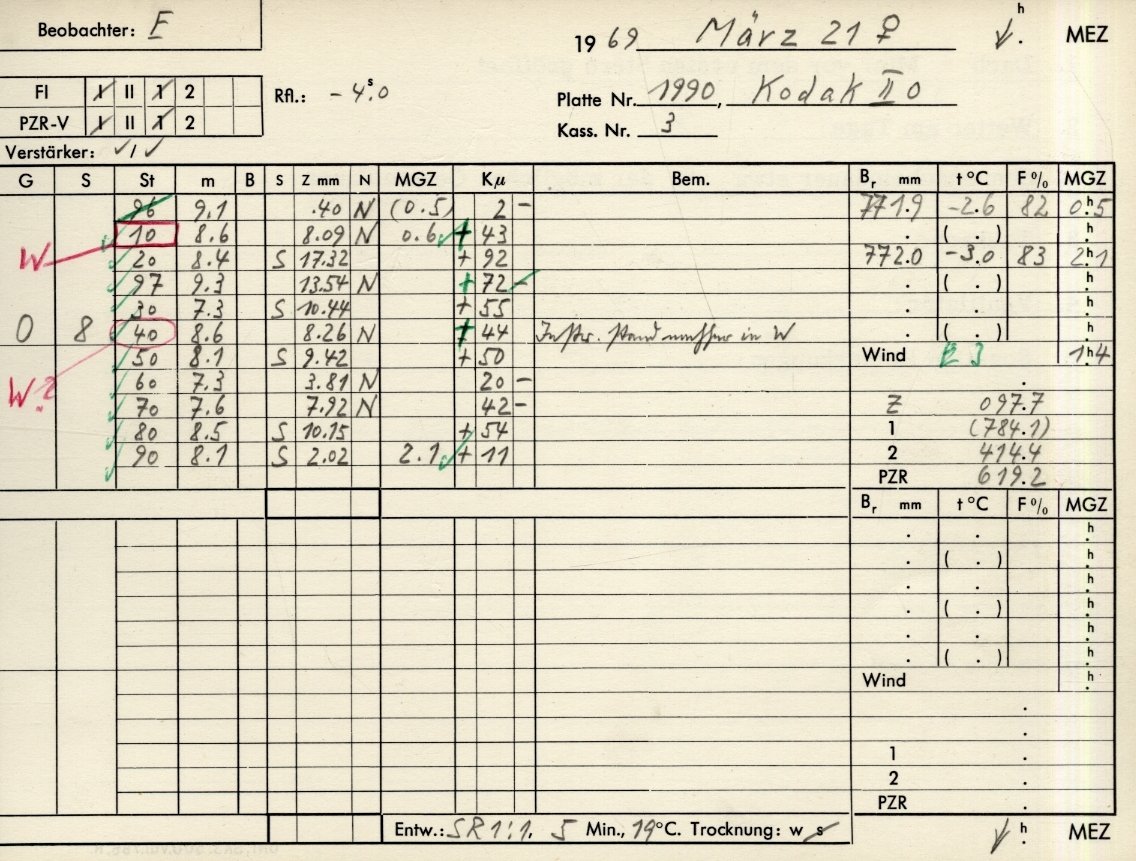 Beobachter: E
19 69 März 21 ♀ h . MEZ
FI I II 1 2
PZR-V I II 1 2
Rfl.: - 4.s0
Platte Nr. 1990, Kodak II 0
Kass. Nr. 3
Verstärker: ✓/✓
G S St m B S Z mm N MGZ Kμ Bem. Br mm t °C F % MGZ
96 9.1 .40 N (0.5) 2 - 771.9 -2.6 82 0.h5
10 8.6 8.09 N 0.6 ✓ + 43 . ( . ) h.
W
20 8.4 S 17.32 + 92 772.0 -3.0 83 2.h1
97 9.3 13.54 N + 72 - . ( . ) h.
30 7.3 S 10.44 + 55 . . h.
0 8 40 8.6 8.26 N + 44 Instr. stand nachher in W . ( . ) h.
50 8.1 S 9.42 + 50 Wind E 3 1.h4
W?
60 7.3 3.81 N 20 - .
70 7.6 7.92 N 42 - Z 097.7
80 8.5 S 10.15 + 54 1 (784.1)
90 8.1 S 2.02 2.1 ✓ + 11 2 414.4
PZR 619.2
Br mm t °C F % MGZ
. . h.
. ( . ) h.
. . h.
. ( . ) h.
. . h.
. ( . ) h.
Wind h.
.
.
1 .
2 .
PZR .
Entw.: SR 1:1. 5 Min., 19 °C. Trocknung: w s h . MEZ